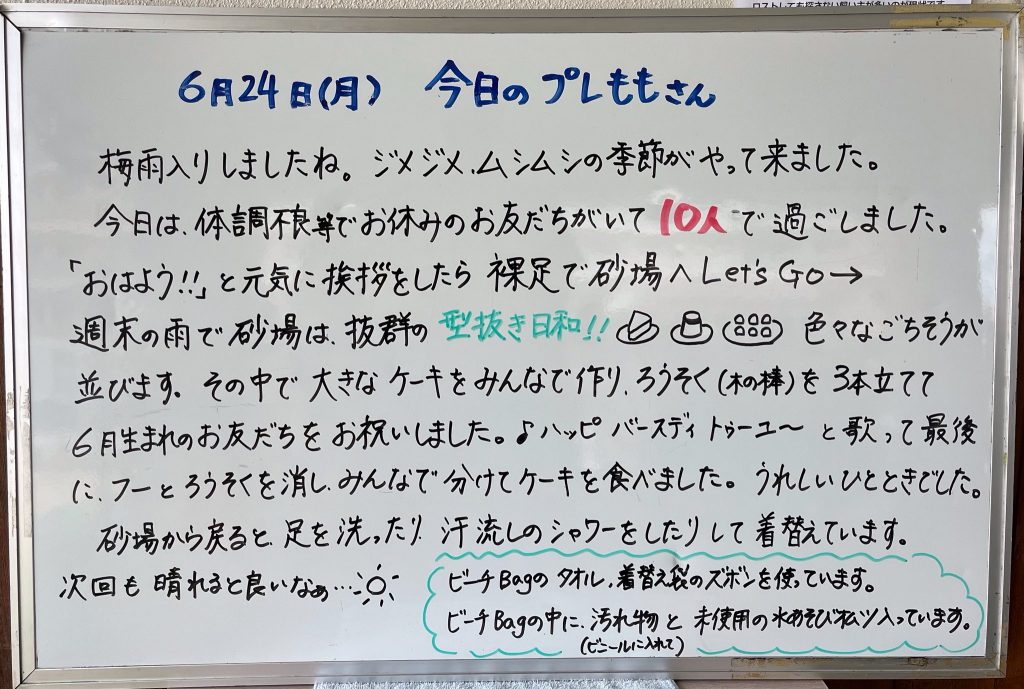 ロストしても探さない飼い主が多いのが現状です
6月24日(月) 今日のプレももさん
梅雨入りしましたね。ジメジメ、ムシムシの季節がやって来ました。
今日は、体調不良等でお休みのお友だちがいて10人で過ごしました。
「おはよう!!」と元気に挨拶をしたら 裸足で砂場へLet's Go→
週末の雨で砂場は、抜群の型抜き日和!! 色々なごちそうが
並びます。その中で大きなケーキをみんなで作り、ろうそく(木の棒)を3本立てて
6月生まれのお友だちをお祝いしました。♪ハッピバースディトゥーユ〜と歌って最後
に、フーとろうそくを消し、みんなで分けてケーキを食べました。うれしいひとときでした。
砂場から戻ると、足を洗ったり、汗流しのシャワーをしたりして着替えています。
次回も晴れると良いなぁ…
ビーチBagのタオル、着替え袋のズボンを使っています。
ビーチBagの中に、汚れ物と未使用の水あそびパンツ入っています。
(ビニールに入れて)